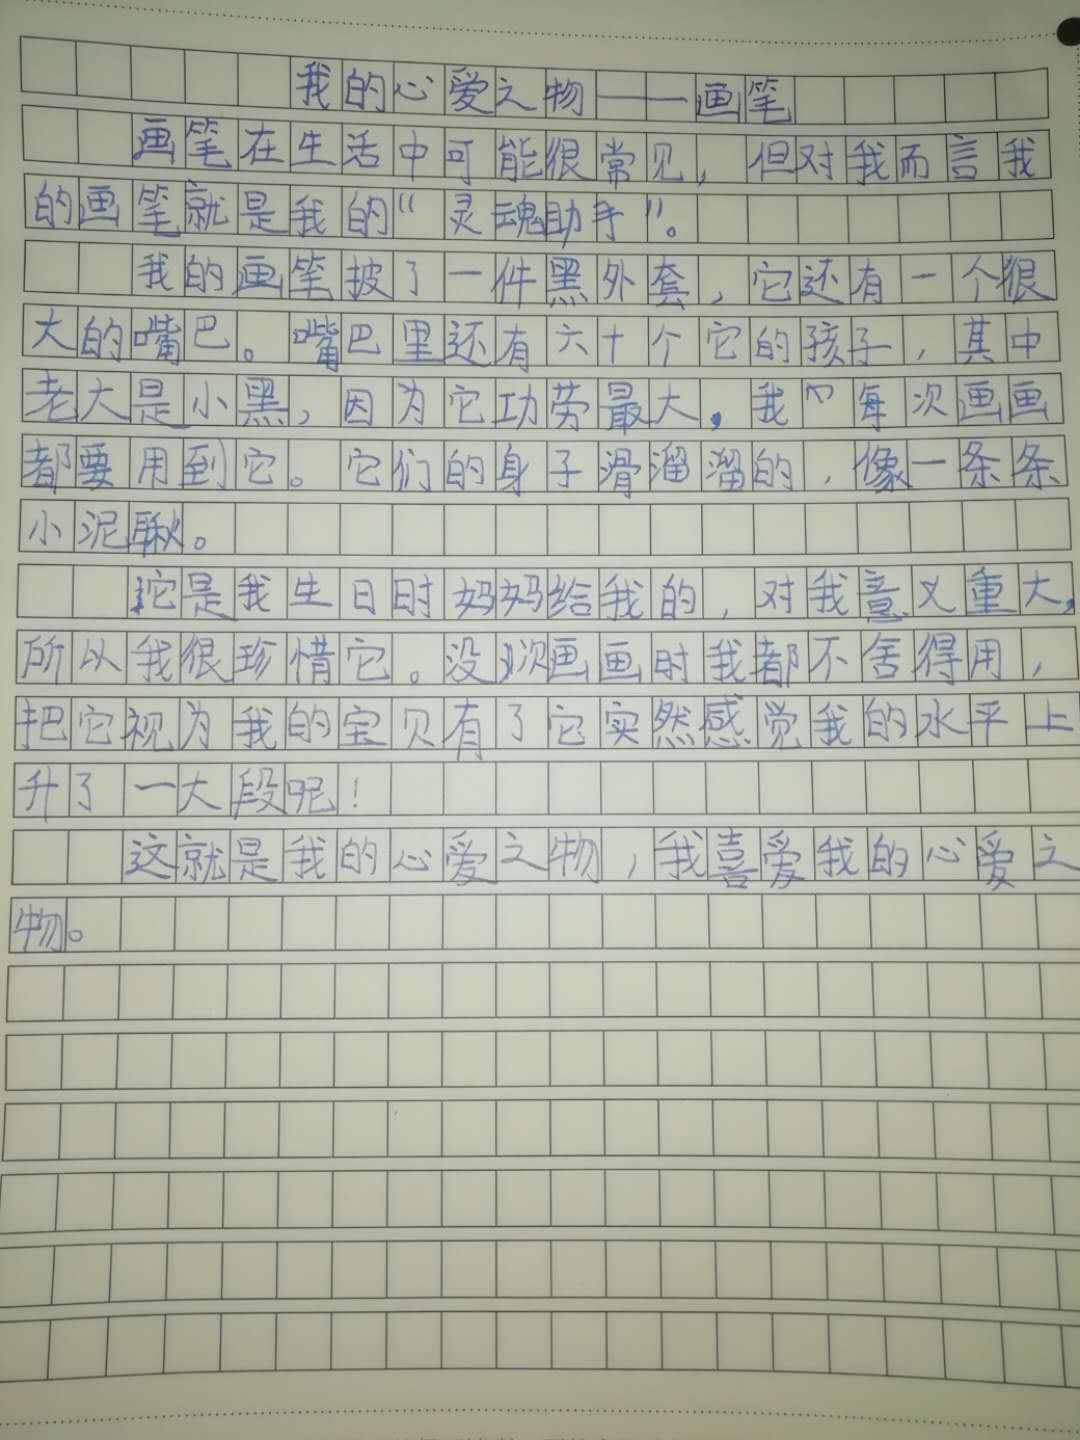 我的心爱之物——画笔
画笔在生活中可能很常见，但对我而言我
的画笔就是我的“灵魂助手”。
我的画笔披了一件黑外套，它还有一个很
大的嘴巴。嘴巴里还有六十个它的孩子，其中
老大是小黑，因为它功劳最大，我每次画画
都要用到它。它们的身子滑溜溜的，像一条条
小泥鳅。
它是我生日时妈妈给我的，对我意义重大，
所以我很珍惜它。没次画画时我都不舍得用，
把它视为我的宝贝有了它实然感觉我的水平上
升了一大段呢！
这就是我的心爱之物，我喜爱我的心爱之
物。